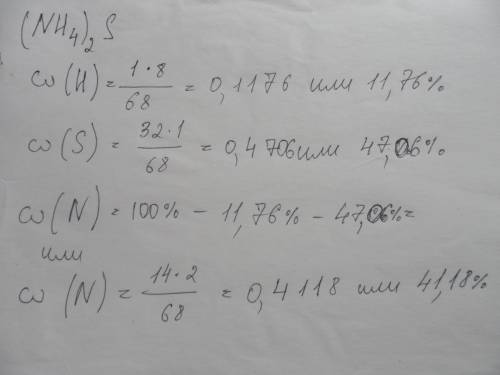 (NH₄)₂S
ω(H) = 1·8/68 = 0,1176 или 11,76%
ω(S) = 32·1/68 = 0,4706 или 47,06%
ω(N) = 100% - 11,76% - 47,06% =
или
ω(N) = 14·2/68 = 0,4118 или 41,18%